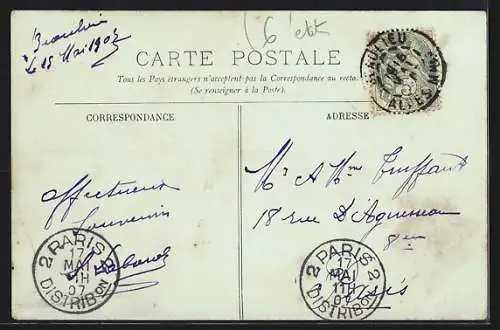 Beaulieu
Le 15 Mai 1907
CARTE POSTALE
Tous les Pays étrangers n'acceptent pas la Correspondance au recto
(Se renseigner à la Poste).
CORRESPONDANCE
ADRESSE
BEAULIEU
ALPES
Affectueux
Souvenir
Mr & Mme Truffaut
18 rue D'Aguesseau
8me
Paris
2 PARIS 2
17
MAI
11H
07
DISTRIBON
2 PARIS 2
17
MAI
11H
07
DISTRIBON